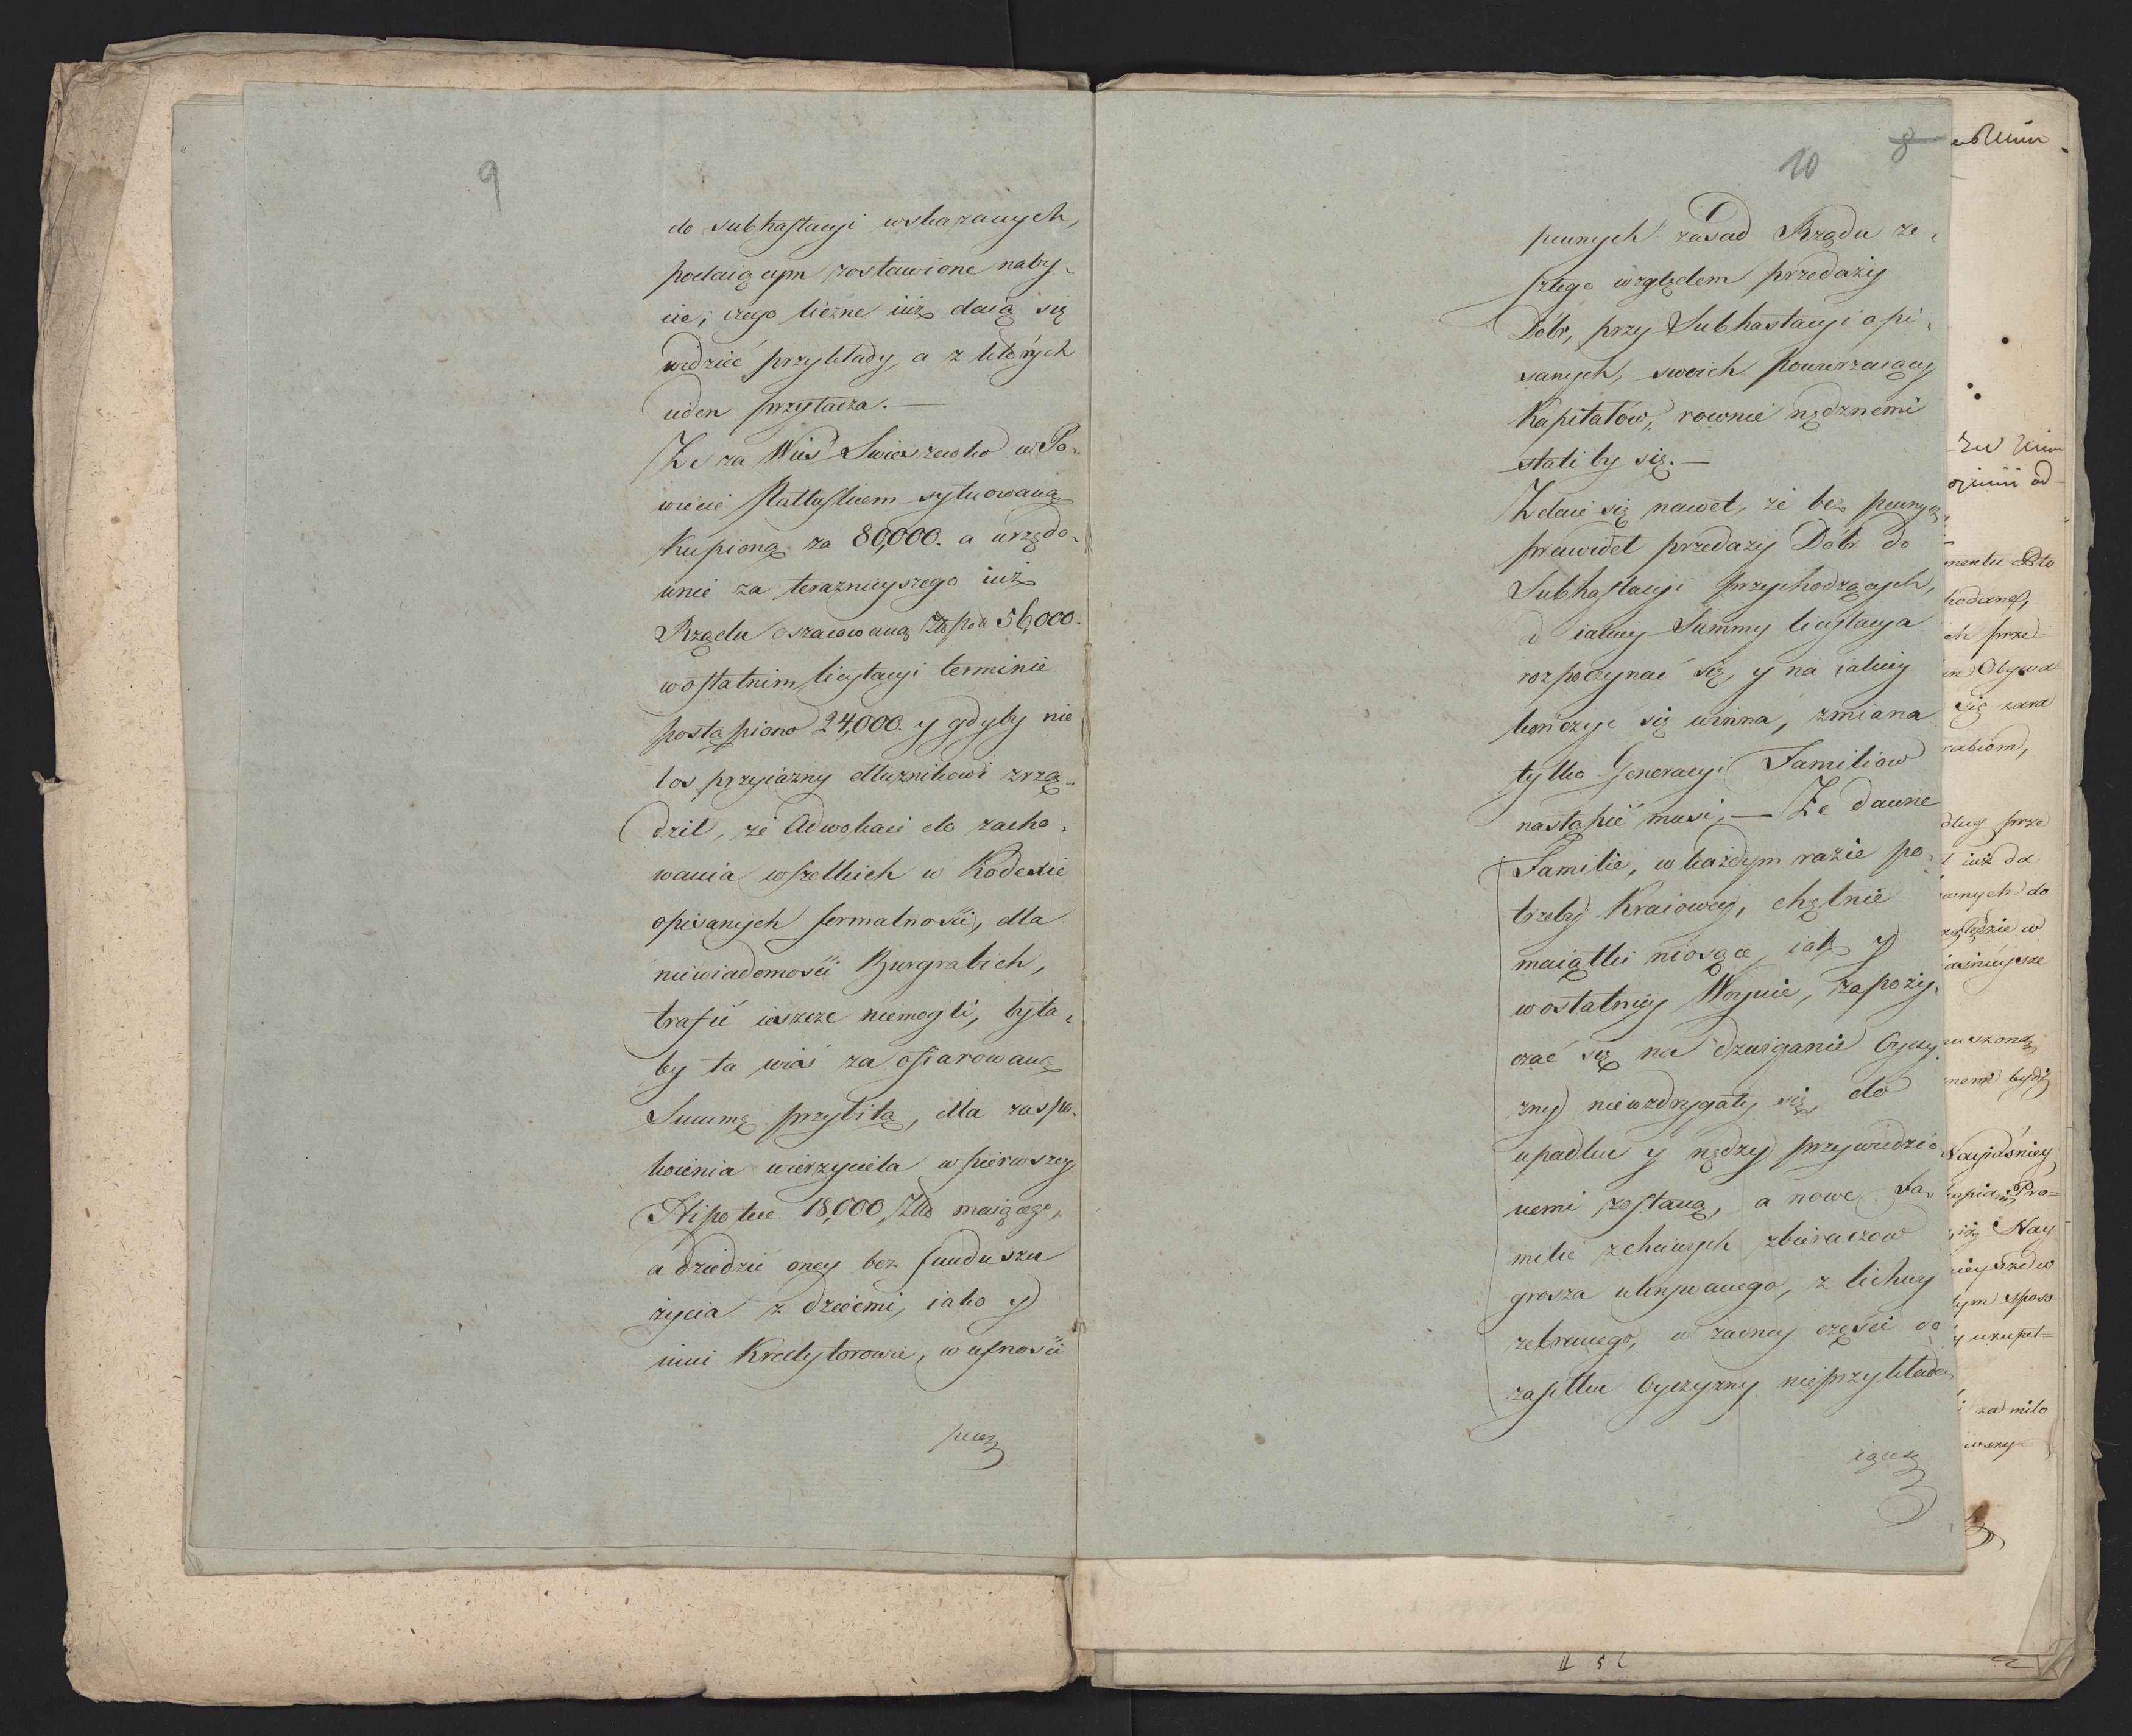 9
do subhastacyi wskazanych,
podaiącym zostawione naby-
cie; czego liczne iuż daią się
widzieć przykłady, a z których
ieden przytacza. —
Że za Wieś w Po-
wiecie Pułtuskiem sytuowaną
Kupioną za 80,000. a urzędo-
wnie za teraznieyszego iuż
Rządu oszacowaną 56,000.
w ostatnim licytacyi terminie
postąpiono 24,000. y gdyby nie
los przyiazny dłużnikowi zrzą-
dził, że Adwokaci do zacho-
wania wszelkich w Kodexie
opisanych formalności, dla
niewiadomości Burgrabich,
trafić ieszcze niemogli, była-
by ta wieś za ofiarowaną
Summę przybitą, dla zaspo-
koienia wierzyciela w pierwszey
Hipotece 18,000 Złł maiącego,
a dziedzic oney bez funduszu
życia z dziećmi, iako y
inni Kredytorowie, w ufności
pew
10 8
pewnych zasad Rządu ze-
szłego względem przedaży
Dóbr, przy Subhastacyi opi-
sanych, swoich powierzaiący
Kapitałów, rownie nędznemi
staliby się. —
Zdaie się nawet, że bez pewnych
prawideł przedaży Dóbr do
Subhastacyi przychodzących,
od iakiey Summy licytacya
rozpoczynać się, y na iakiey
kończyć się winna, zmiana
tylko Generacyi Familiow
nastąpić musi, — Że dawne
Familie, w każdym razie po-
trzeby Kraiowey, chętnie
maiątki niosące, iak y
w ostatniey Woynie, zapoży-
czać się na dzwiganie Oyczy-
zny niewzdrygały się, do
upadku y nędzy przywiedzio-
nemi zostaną, a nowe Fa-
milie z chciwych zbieraczow
grosza ukrywanego, z lichwy
zebranego, w żadney części do
zasiłku Oyczyzny nieprzykłada-
iące
mentu
kodanej,
ch prze-
się zara
rabiom,
dług prze
iuż da
wnych do
w
iasnieysze
nemi bydź
Nayiaśniey
Pro=
iż Nay
tym sposo
za miło